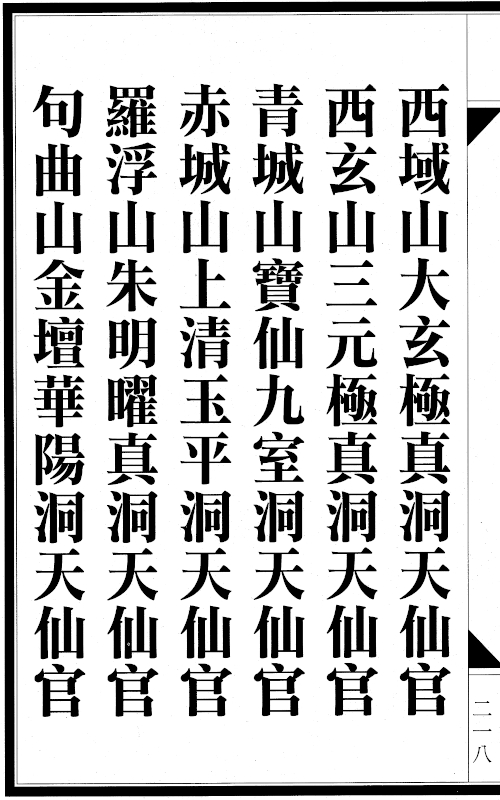 西域山大玄極真洞天仙官
西玄山三元極真洞天仙官
青城山寶仙九室洞天仙官
赤城山上清玉平洞天仙官
羅浮山朱明曜真洞天仙官
句曲山金壇華陽洞天仙官
二一八